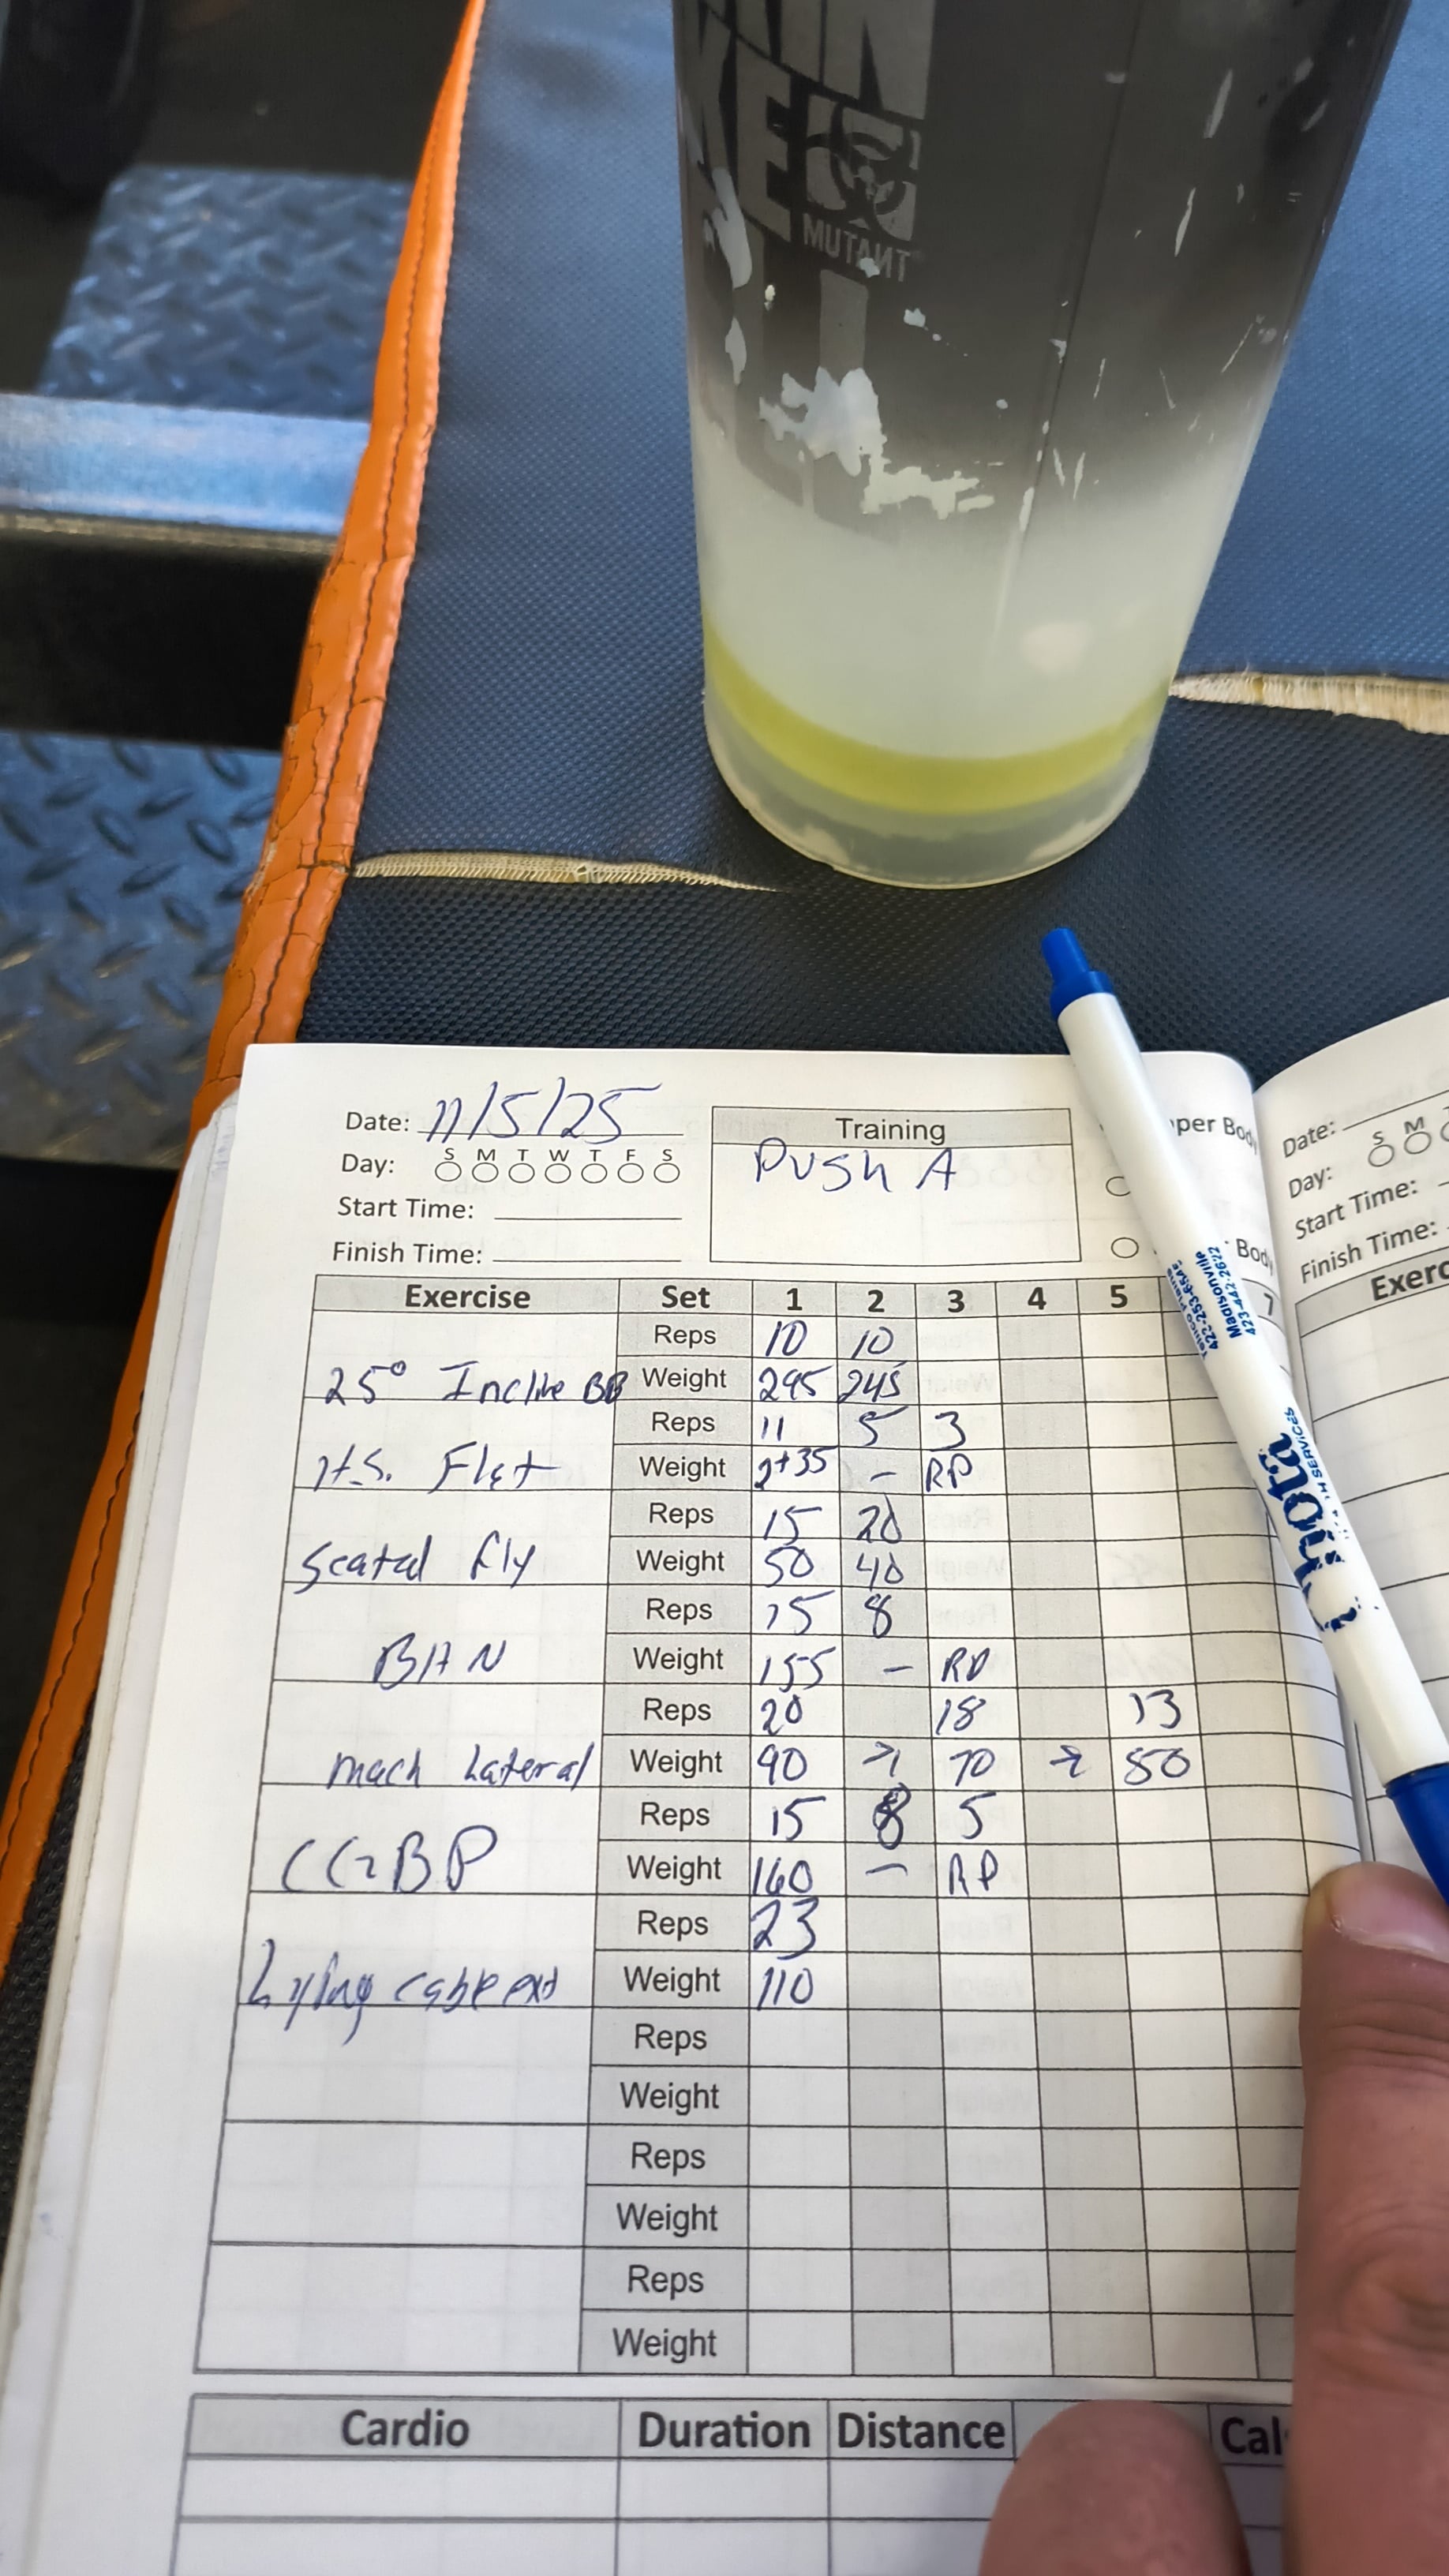 MUTANT
Date: 11/5/25
Training
Push A
Day: S M T W T F S
Start Time:
Finish Time:
Exercise Set 1 2 3 4 5 7
Reps 10 10
25° Incline BB Weight 295 245
Reps 11 5 3
H.S. Flat Weight 2+35 – RP
Reps 15 20
Seated fly Weight 50 40
Reps 15 8
BHN Weight 155 – RP
Reps 20 18 13
Mach Lateral Weight 90 → 70 → 50
Reps 15 8 5
CCGBP Weight 160 – RP
Reps 23
Lying cable ext Weight 110
Reps
Weight
Reps
Weight
Reps
Weight
Cardio Duration Distance
Date:
Day: S M
Start Time:
Finish Time:
Madisonville
423-442-2622